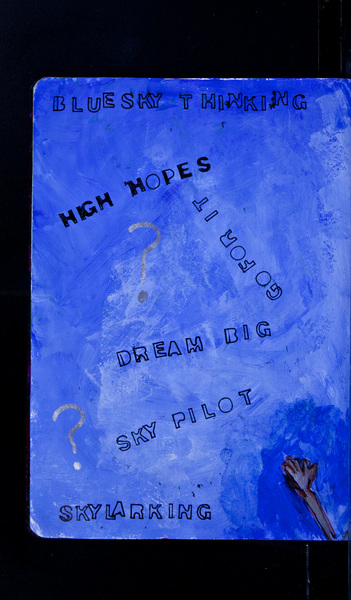 BLUESKY THINKING
HIGH HOPES
GO FOR IT
?
DREAM BIG
SKY PILOT
?
SKYLARKING